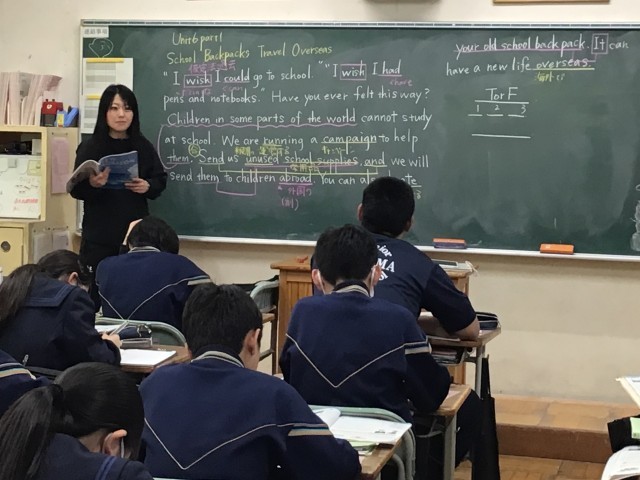 連絡事項
Unit6 part1
School Backpacks Travel Overseas
"I wish I could go to school." "I wish I had
pens and notebooks." Have you ever felt this way?
Children in some parts of the world cannot study
at school. We are running a campaign to help
them. Send us unused school supplies, and we will
send them to children abroad. You can
your old school backpack. It can
have a new life overseas.
T or F
1 2 3